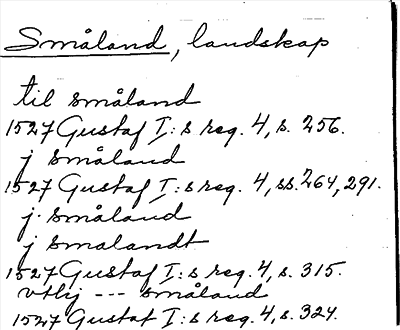 Småland, landskap
til småland
1527 Gustaf I:s reg. 4, s. 256.
j småland
1527 Gustaf I:s reg. 4, ss. 264, 291.
j småland
j smalandt
1527 Gustaf I:s reg. 4, s. 315.
vthj --- småland
1527 Gustaf I:s reg. 4, s. 324.